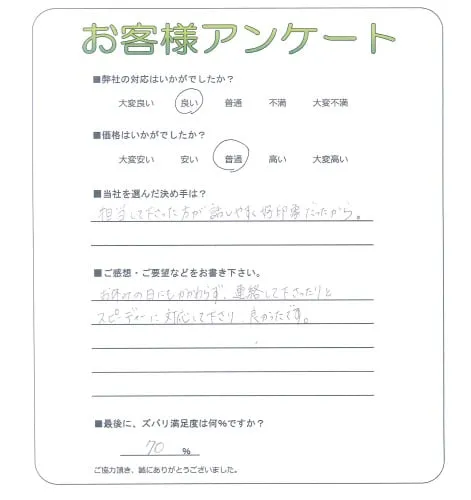 お客様アンケート
■弊社の対応はいかがでしたか？
大変良い 良い 普通 不満 大変不満
■価格はいかがでしたか？
大変安い 安い 普通 高い 大変高い
■当社を選んだ決め手は？
担当して下さった方が話しやすく好印象だったから。
■ご感想・ご要望などをお書き下さい。
お休みの日にもかかわらず、連絡して下さったりと
スピーディーに対応して下さり 良かったです。
■最後に、ズバリ満足度は何%ですか？
70 %
ご協力頂き、誠にありがとうございました。